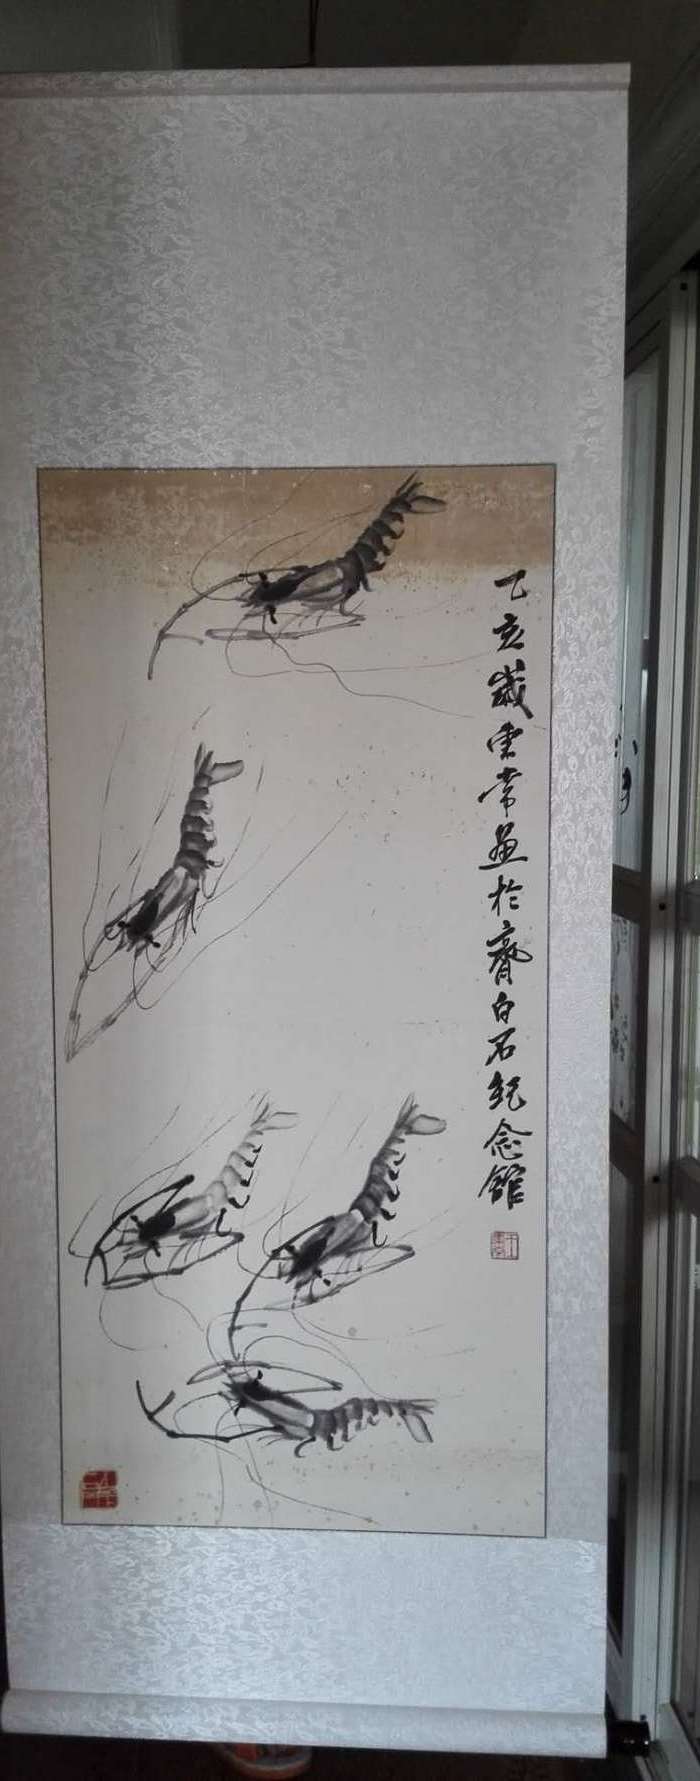 乙亥歲雲常画於齊白石紀念館